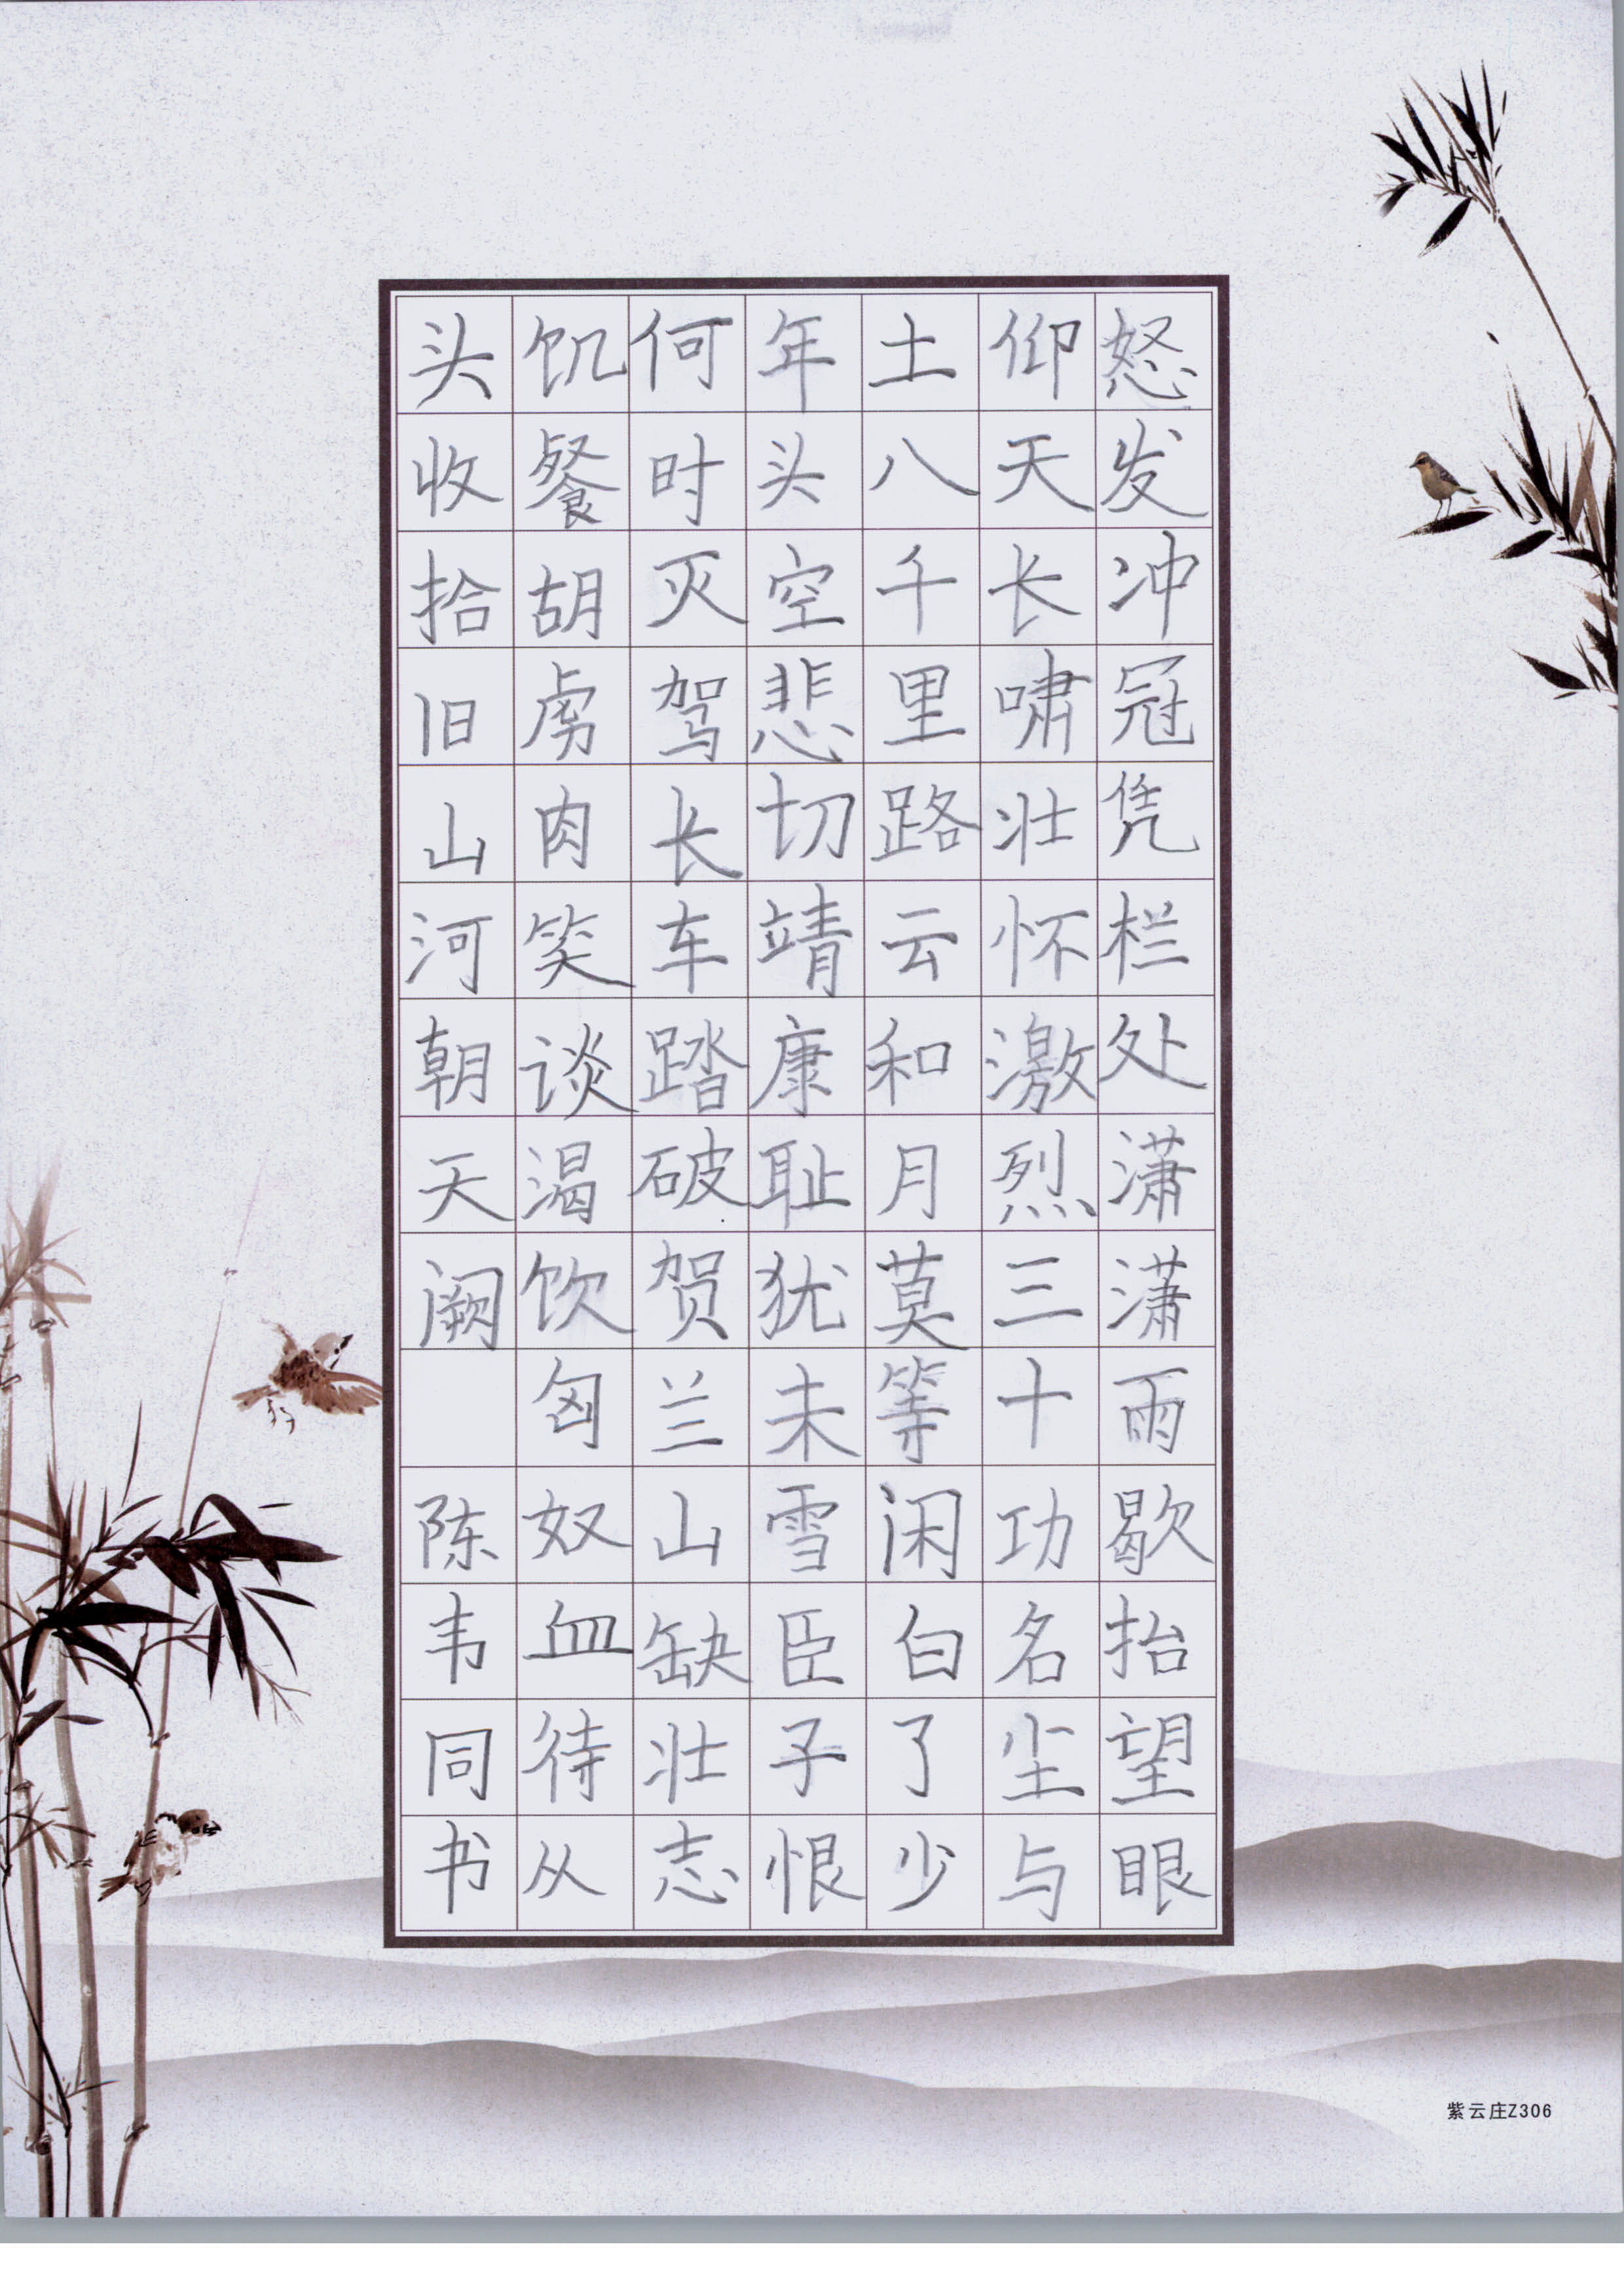 怒发冲冠凭栏处潇潇雨歇抬望眼
仰天长啸壮怀激烈三十功名尘与
土八千里路云和月莫等闲白了少
年头空悲切靖康耻犹未雪臣子恨
何时灭驾长车踏破贺兰山缺壮志
饥餐胡虏肉笑谈渴饮匈奴血待从
头收拾旧山河朝天阙 陈韦同书
紫云庄Z306